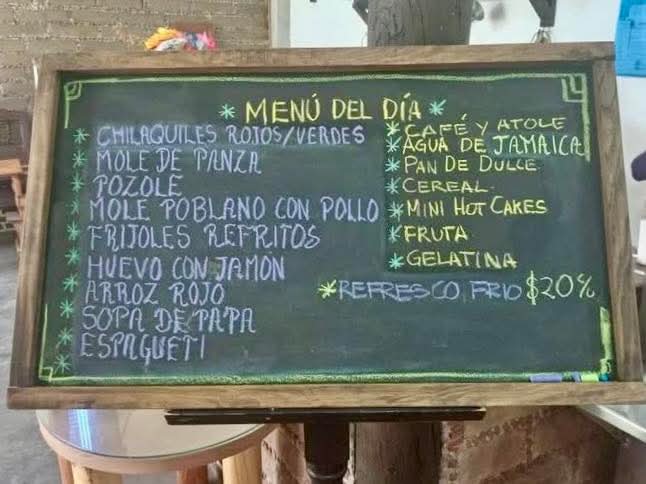 * MENÚ DEL DÍA *
* CHILAQUILES ROJOS/VERDES
* MOLE DE PANZA
* POZOLE
* MOLE POBLANO CON POLLO
* FRIJOLES REFRITOS
* HUEVO CON JAMÓN
* ARROZ ROJO
* SOPA DE PAPA
* ESPAGUETI
* CAFÉ Y ATOLE
* AGUA DE JAMAICA
* PAN DE DULCE
* CEREAL.
* MINI HOT CAKES
* FRUTA
* GELATINA
* REFRESCO, FRIO $20%